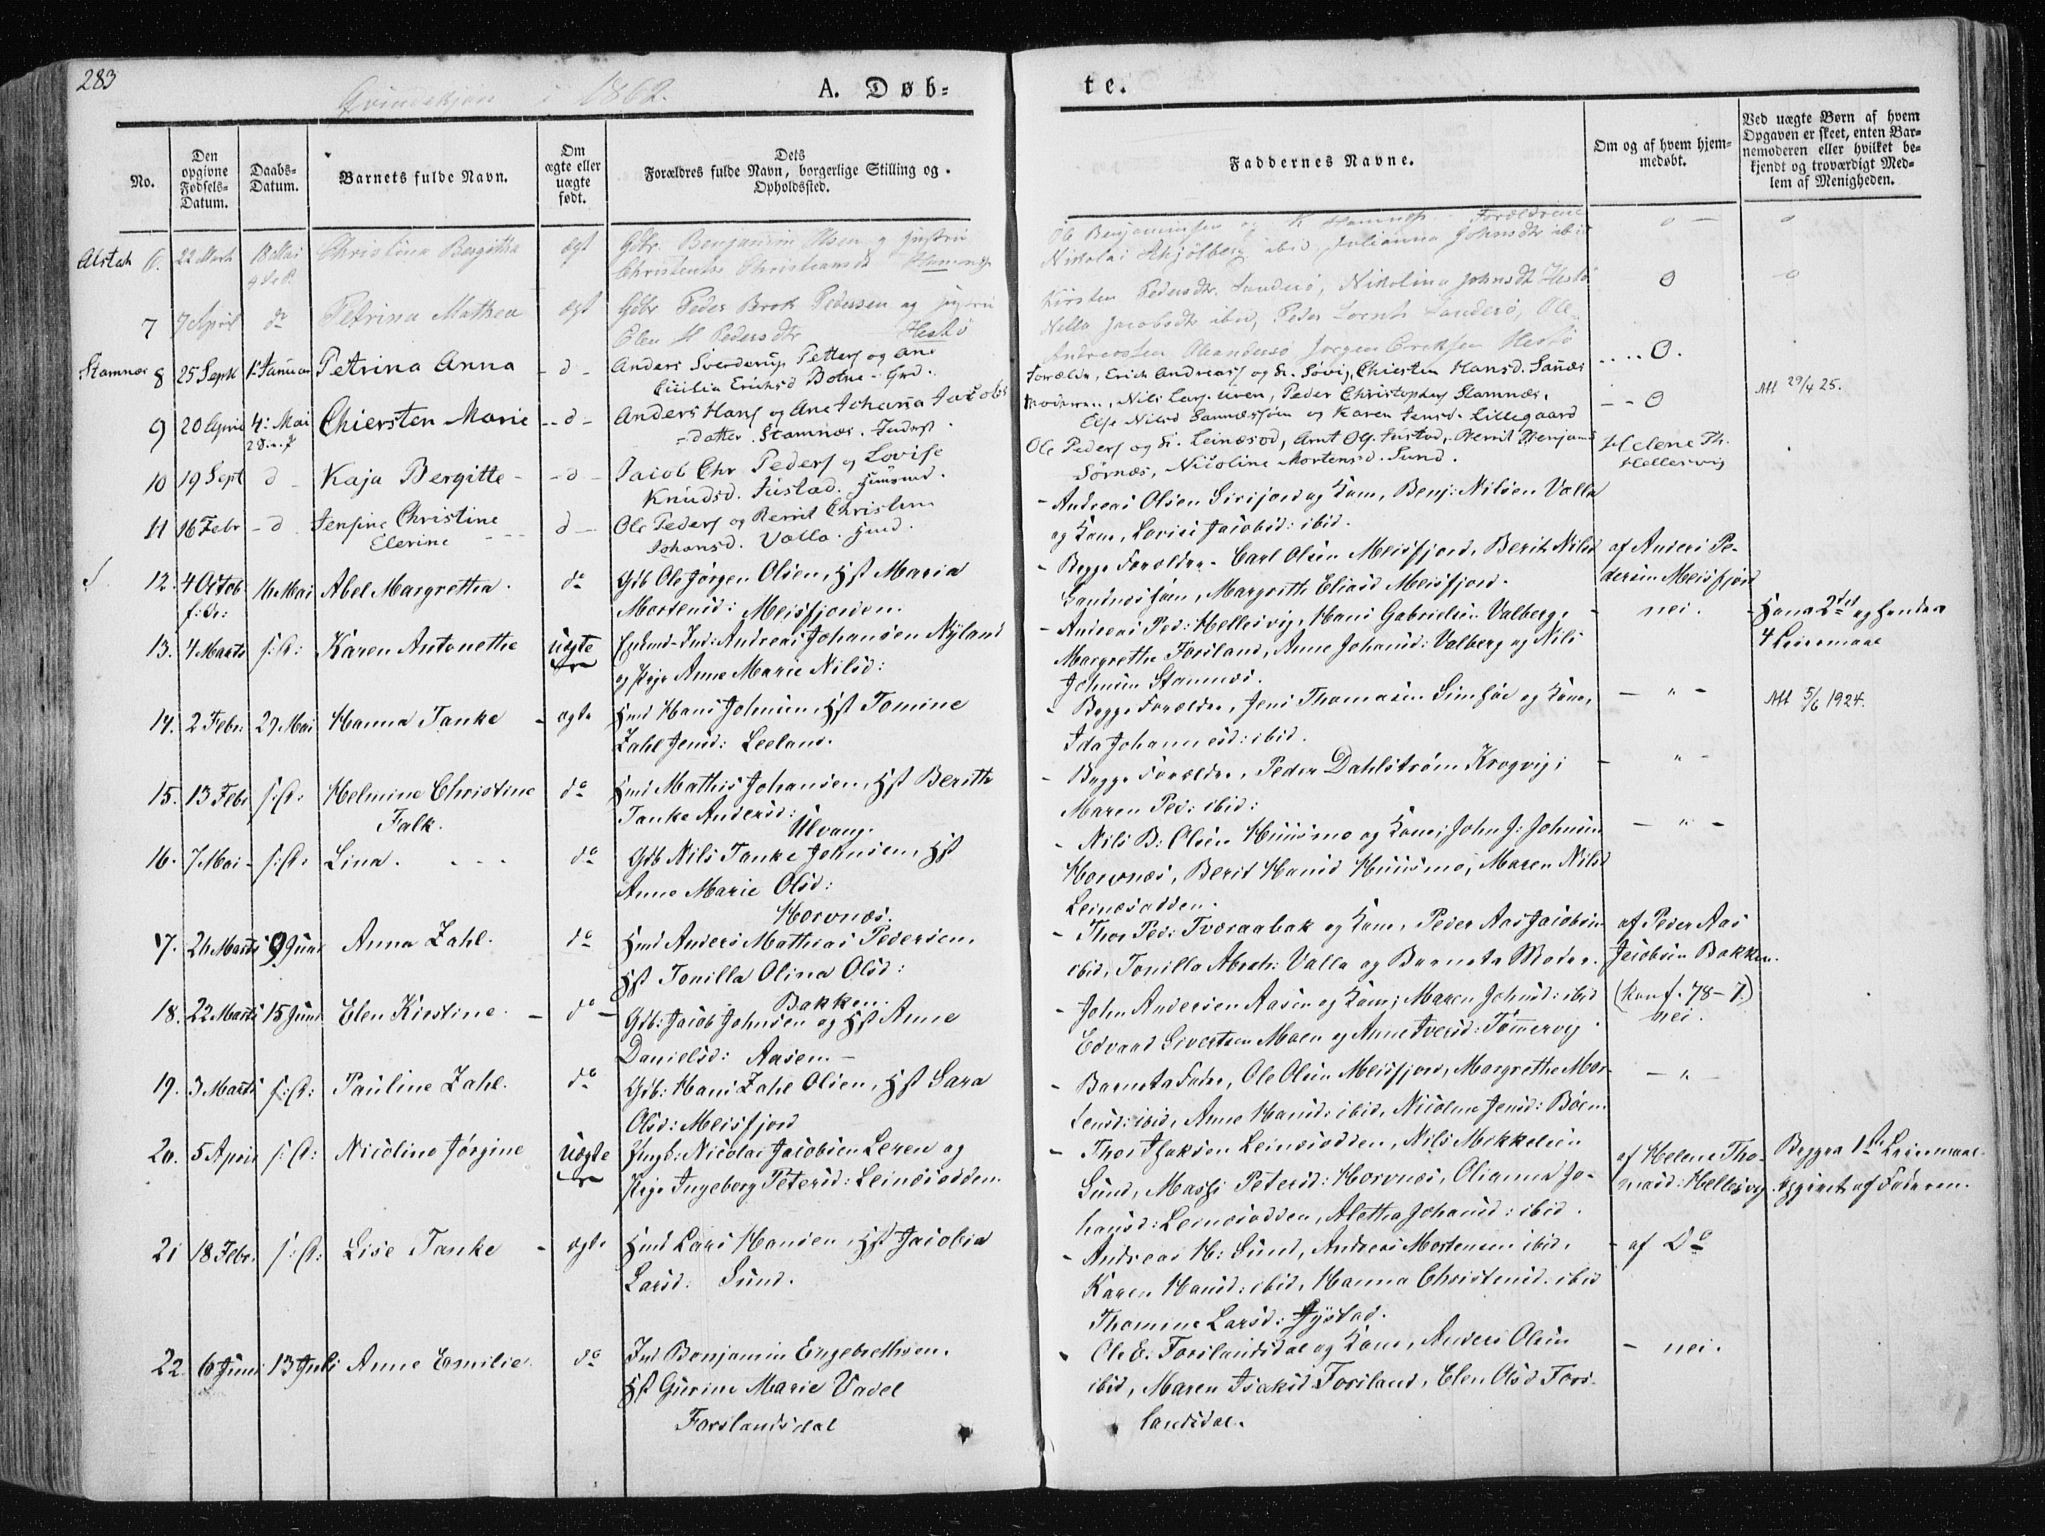 283
Qvindekjøn i 1862. A. Døb-
te.
No.
Den opgivne Fødsels-Datum.
Daabs-Datum.
Barnets fulde Navn.
Om ægte eller uægte født.
Dets Forældres fulde Navn, borgerlige Stilling og Opholdssted.
Faddernes Navne.
Om og af hvem hjemmedøbt.
Ved uægte Børn af hvem Opgaven er skeet, enten Barnemoderen eller hvilket bekjendt og troværdigt Medlem af Menigheden.
Alstah 6. 22 Marts 18 Mai Christina Bergitha ægt Gbr. Benjamin Olsen og Hustru
Christentse Christiansdt Hamnes
Ole Benjaminsen og K Hamnes Forældrene
Nikolai Skjølberg ibid, Julianna Johnsdt ibid
0 0
7 7 April do Petrina Mathea ægt Gbr Peder Brok Pedersen og Hustru
Elen M Pedersdtr Hestø
Kirsten Pedersdtr Sandersø, Nikolina Johnsdt Hestø
Nella Jacobsdt ibid, Peder Lornts Sandersø, Ole
Andreassen Alsandersø Jørgen Eriksen Hestø
0 0
Stamnæs 8 25 Sept 1: Januar Petrina Anna - d - Anders Sverdrup Petters og Ane
Cicilia Erichsd Botne - Grd.
Forældr., Erich Andreass og K. Søvig, Chiersten Hansd. Sanæs
.... 0.
9 20 April 4: Mai Chiersten Marie - d - Anders Hans og Ane Johana Jacobs
-datter. Stamnæs. Inderst.
Moderen, Nils Lars. Uren, Peder Christophers Stamnæs,
Else Nilsd Sannæssjøen og Karen Jensd. Lillegaard
-- 0 Att 29/4 25.
10 19 Sept d - Kaja Bergitte - - d - Jacob Chr Peders og Lovise
Knudsd. Justad. Huusmd.
Ole Peders og K. Leinæsod, Arnt Ols. Justad, Berrit Benjams
Sørnæs, Nicoline Mortensd. Sund.
Helene Th.
Hellesvig
11 16 Febr - d Jensine Christine
Elerine
d - Ole Peders og Berrit Christine
Johansd. Valla. Hmd.
- Andreas Olsen Sirijord og Kone, Benj: Nilsen Valla
og Kone, Lovise Jacobsd: ibid.
12. 4 Octob
f: Ar:
16 Mai Abel Margretha. do Gdb Ole Jørgen Olsen, Hst Maria
Mortensd: Meisfjorden.
- Begge Forældre. Carl Olsen Meisfjord, Berit Nilsd
Sandnessjøen, Margreth Eliasd Meisfjord.
af Anders Pe-
dersen Meisfjord
13. 4 Marts s: D: Karen Antonette Uægte Enkmd-Ind: Andreas Johansen Nyland
og Pige Anne Marie Nilsd:
- Andreas Ped: Hellesvig, Hans Gabrielsen Valberg,
Margrethe Forsland, Anne Johansd: Valberg og Nils
Johnsen Stamnæs.
nei. Hans 2det og hendes
4 Leiermaal
14. 2 Febr: 29 Mai Hanna Tanke - ægte Hmd Hans Johnsen, Hst Tomine
Zahl Jensd: Leeland.
- Begge Forældre, Jens Thomasen Simsøe og Kone,
Ida Johannesd: ibid.
- " - Att 5/6 1924.
15. 13 Febr s: D: Helmine Christine
Falk.
do Hmd Mathis Johansen, Hst Berith
Tanke Andersd:
Ulvang.
- Begge Forældre, Peder Dahlstrøm Krogvig;
Maren Ped: ibid:
- " -
16. 7 Mai - s: D: Lina. do Gdb Nils Tanke Johnsen, Hst
Anne Marie Olsd:
Horvnæs.
- Nils B: Olsen Huusmo og Kone, John J: Johnsen
Horvnæs, Berit Hansd Huusmo, Maren Nilsd
Leinesodden.
- " -
7. 24 Marts 9 Juni Anna Zahl. do Hmd Anders Mathias Pedersen,
Hst Tonilla Olina Olsd:
Bakken.
- Thor Ped: Tveraabak og Kone, Peder Aas Jacobsen
ibid, Tonilla Abrah: Valla og Barnets Moder.
af Peder Aas
Jacobsen Bakken.
(Konf. 78-7.)
18. 22 Marts 15 Juni Elen Kiestine. - do - Gdb: Jacob Johnsen og Hst Anne
Danielsd: Aasen. -
- John Andersen Aasen og Kone, Maren Johnsd: ibid
Edvard Sivertsen Moen og Anne Iversd: Tømmervig.
nei.
19. 3 Marts s: D: Pauline Zahl. do Gdb: Hans Zahl Olsen, Hst Sara
Olsd: Meisfjord
- Barnets Fader, Ole Olsen Meisfjord, Margrethe Mor-
tensd: ibid, Anne Hansd: ibid, Nicoline Jensd: Bøen
- " -
20. 5 April s: D: Nicoline Jørgine Uægte Ungk: Nicolai Jacobsen Leren og
Pige Ingeborg Petersd: Leinesodden.
- Thor Isaksen Leinesodden, Nils Mikkelsen
Sund, Massi Petersd: Horvnæs, Olianna Jo-
hansd: Leinesodden, Aletha Johansd: ibid.
af Helene Tho-
masd: Hellesvig
Begges 1ste Leiermaal.
Opgivet af Faderen.
21 18 Febr. s: D: Lise Tanke - ægte Hmd Lars Hansen, Hst Jacobia
Larsd. Sund.
- Andreas H: Sund, Anders Mortensen ibid.
Karen Hansd: ibid, Hanna Christensd. ibid
Thomine Larsd: Tystad.
- af Do
22. 6 Juni 13 Juli Anne Emilie. do Ind Benjamin Engebrethsen.
Hst Gurine Marie Vadel
Forslandsdal
Ole E. Forslandsdal og Kone, Anders Olsen
ibid, Maren Isaksd Forsland, Elen Olsd Fors-
landsdal.
- nei.